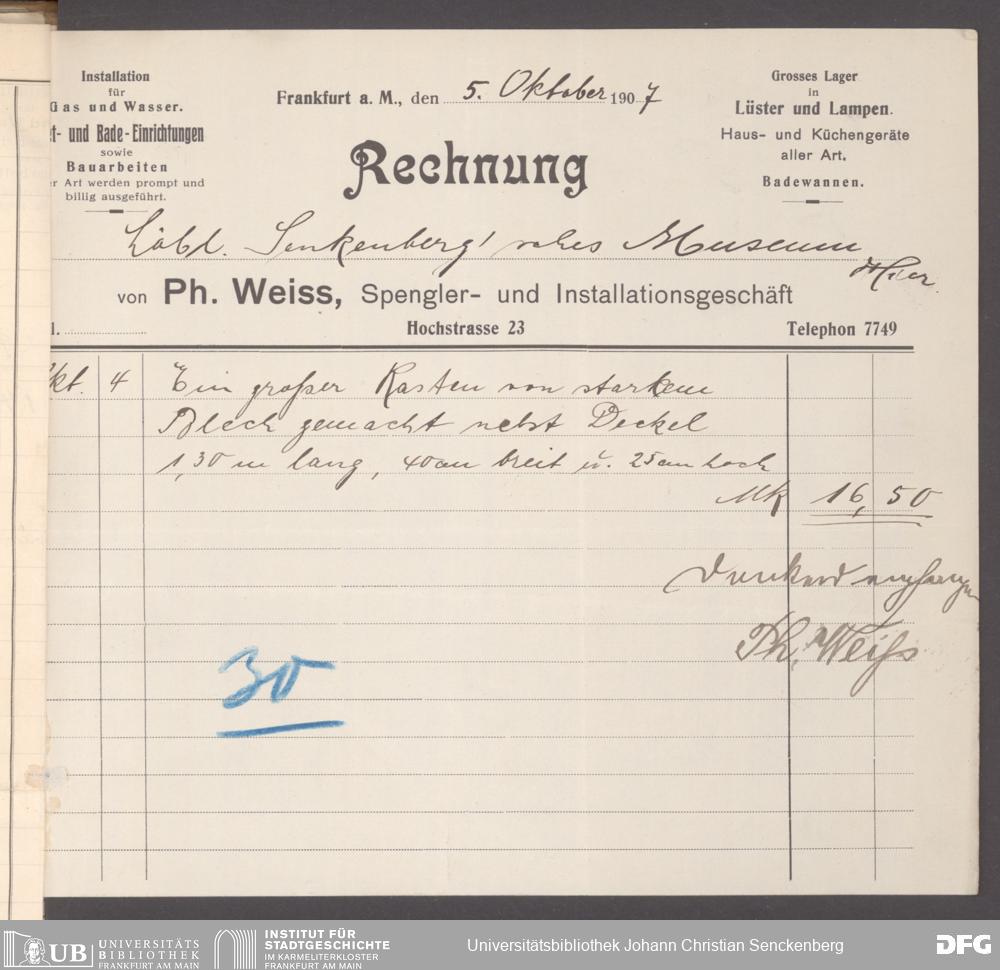 Installation
für
Gas und Wasser.
t- und Bade-Einrichtungen
sowie
Bauarbeiten
r Art werden prompt und
billig ausgeführt.
Frankfurt a. M., den 5. Oktober 1907
Grosses Lager
in
Lüster und Lampen.
Haus- und Küchengeräte
aller Art.
Badewannen.
Rechnung
Löbl. Senkenberg'sches Museum
Hier.
von Ph. Weiss, Spengler- und Installationsgeschäft
Hochstrasse 23
Telephon 7749
kt. 4 Ein großer Kasten von starkem
Blech gemacht nebst Deckel
1,30 m lang, 40 cm breit u. 25 cm hoch
Mk 16,50
Dankend empfangen
Ph. Weiss
30
UB UNIVERSITÄTS
BIBLIOTHEK
FRANKFURT AM MAIN
INSTITUT FÜR
STADTGESCHICHTE
IM KARMELITERKLOSTER
FRANKFURT AM MAIN
Universitätsbibliothek Johann Christian Senckenberg
DFG